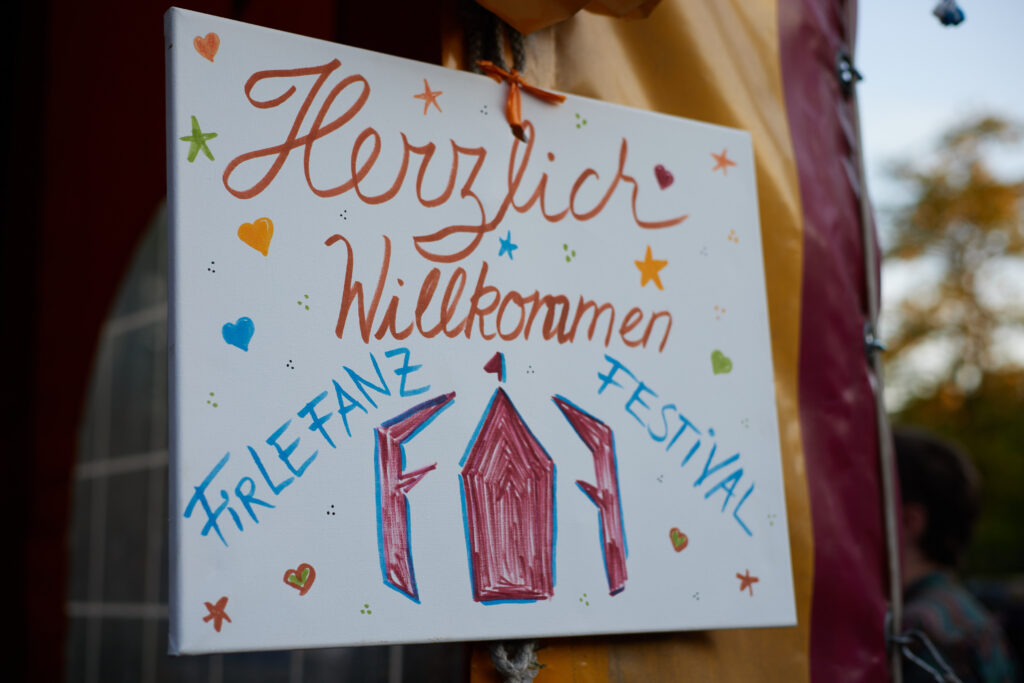 Herzlich
Willkommen
FIRLEFANZ FESTIVAL